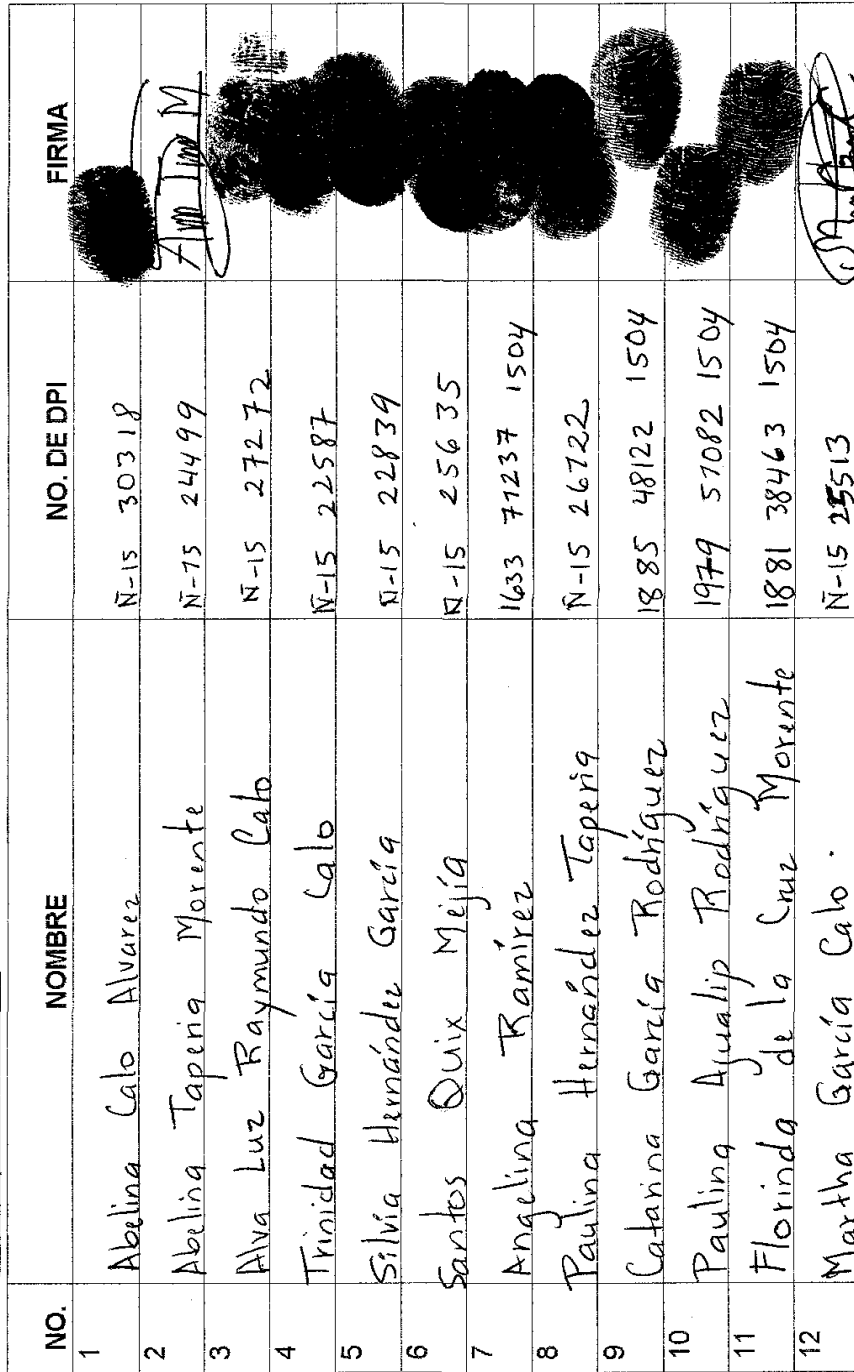 NO. NOMBRE NO. DE DPI FIRMA
1 Abelina Calo Alvarez Ñ-15 30318
2 Abelina Taperia Morente Ñ-15 24499
3 Alva Luz Raymundo Calo Ñ-15 27272
4 Trinidad García Calo Ñ-15 22587
5 Silvia Hernández García Ñ-15 22839
6 Santos Quix Mejía Ñ-15 25635
7 Angelina Ramírez 1633 71237 1504
8 Paulina Hernández Taperia Ñ-15 26722
9 Catarina García Rodríguez 1885 48122 1504
10 Paulina Ajualip Rodríguez 1979 57082 1504
11 Florinda de la Cruz Morente 1881 38463 1504
12 Martha García Calo. Ñ-15 25513